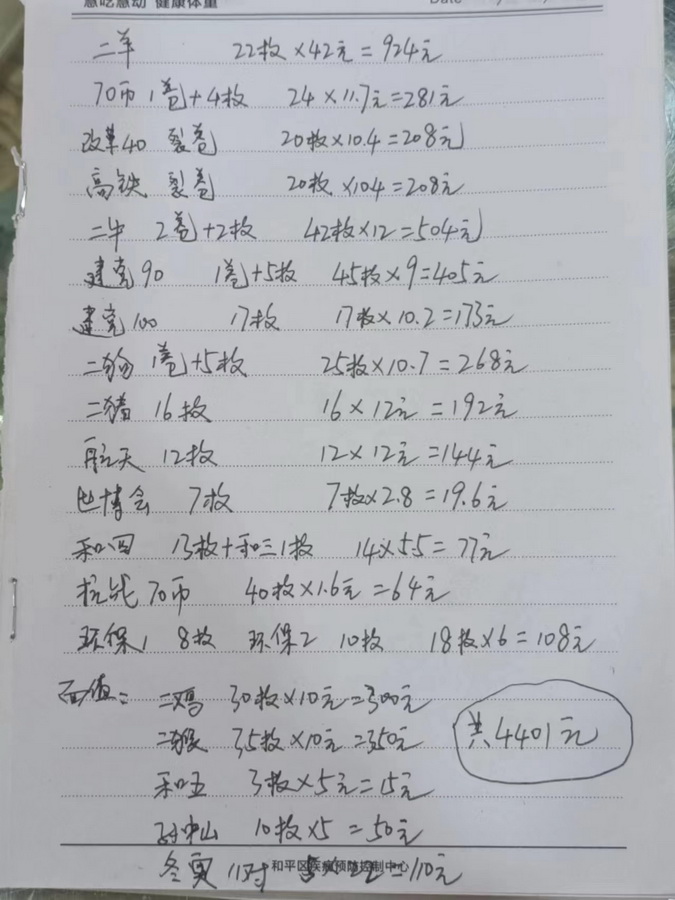 慧吃慧动 健康体重 Date
二羊 22枚×42元=924元
70币 1卷+4枚 24×11.7元=281元
改革40 裂卷 20枚×10.4=208元
高铁 裂卷 20枚×10.4=208元
二牛 2卷+2枚 42枚×12=504元
建党90 1卷+5枚 45枚×9=405元
建党100 17枚 17枚×10.2=173元
二狗 1卷+5枚 25枚×10.7=268元
二猪 16枚 16×12元=192元
航天 12枚 12×12元=144元
世博会 7枚 7枚×2.8=19.6元
和四 13枚+和三1枚 14×5.5=77元
抗战70币 40枚×1.6元=64元
环保1 8枚 环保2 10枚 18枚×6=108元
面值: 二鸡 30枚×10元=300元
二猴 35枚×10元=350元
共4401元
和五 3枚×5元=15元
孙中山 10枚×5=50元
和平区疾病预防控制中心
冬奥 11对 =110元